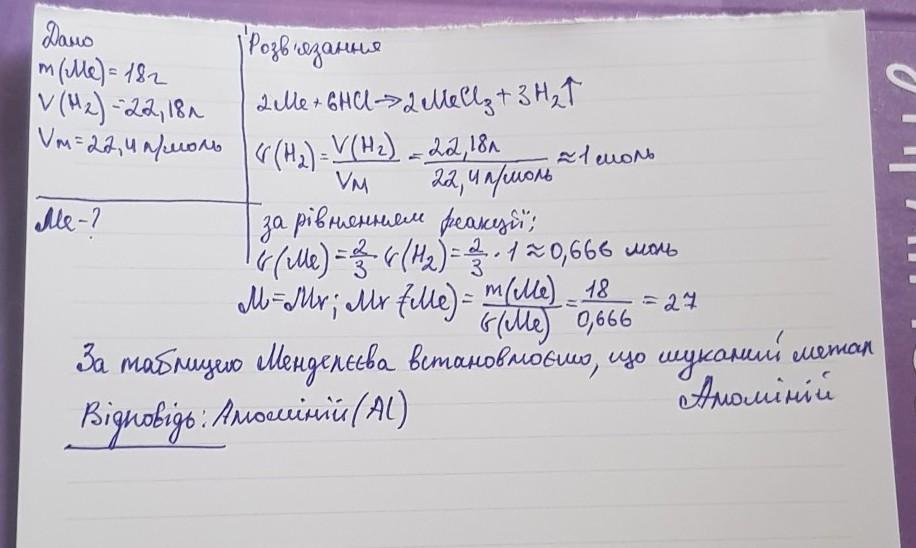 Дано
m(Me)=18г
V(H₂)=22,18л
Vm=22,4л/моль
Me-?
Розв'язання
2Me+6HCl→2MeCl₃+3H₂↑
ν(H₂)=V(H₂)/Vм=22,18л/22,4л/моль≈1моль
за рівнянням реакції;
ν(Me)=2/3·ν(H₂)=2/3·1≈0,666 моль
M=Mr; Mr(Me)=m(Me)/ν(Me)=18/0,666=27
За таблицею Менделєєва встановлюємо, що шуканий метал
Алюміній
Відповідь: Алюміній(Al)